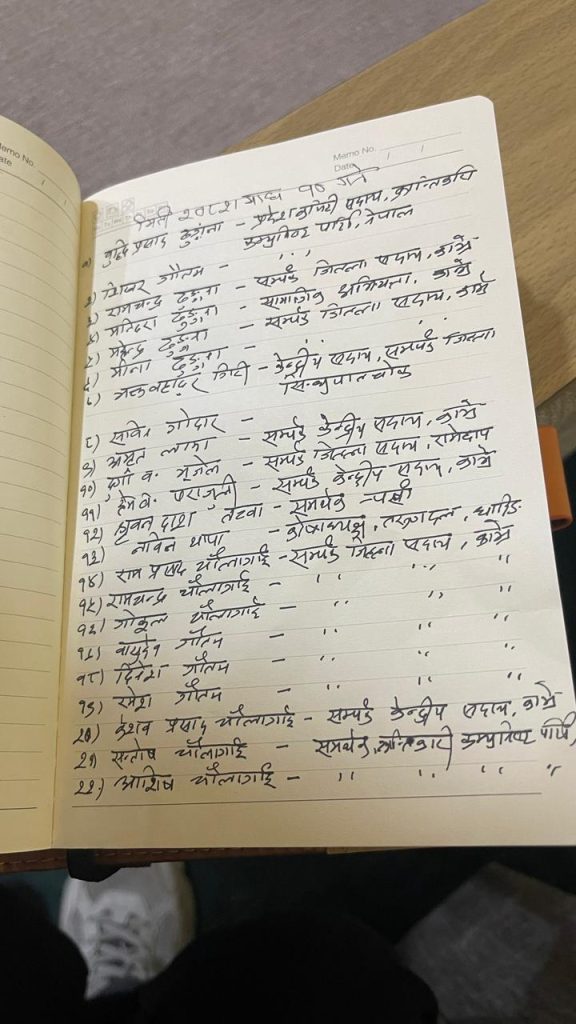 Memo No.
Date / /
मिती २०८१ माघ १० गते
१) बुद्धि प्रसाद - प्रदेश कमिटी सदस्य, क्रान्तिकारी
कम्युनिष्ट पार्टी, नेपाल
२) गौतम - " "
३) रामचन्द्र ढुङ्गाना - सम्पर्क जिल्ला सदस्य, काभ्रे
४) मन्दिरा ढुङ्गाना - सामाजिक अभियन्ता, काभ्रे
५) महेन्द्र ढुङ्गाना - सम्पर्क जिल्ला सदस्य, काभ्रे
६) मीना ढुङ्गाना - " "
७) भक्तबहादुर गिरी - केन्द्रीय सदस्य, सम्पर्क जिल्ला
सिन्धुपाल्चोक
८) गोदार -
९) अमृत लामा - सम्पर्क केन्द्रीय सदस्य, काभ्रे
१०) दुर्गा ब. भुजेल - सम्पर्क जिल्ला सदस्य,
११) हेम ब. पराजुली - सम्पर्क केन्द्रीय सदस्य, काभ्रे
१२) भुवन दाश तत्वा - समर्थक
१३) नविन थापा - कोषाध्यक्ष, धादिङ
१४) राम प्रसाद चौलागाई - सम्पर्क जिल्ला सदस्य, काभ्रे
१५) रामचन्द्र चौलागाई - " " "
१६) गोकुल चौलागाई - " " "
१७) वासुदेव गौतम - " " "
१८) दिनेश गौतम - " " "
१९) रमेश गौतम - " " "
२०) केशव प्रसाद चौलागाई - सम्पर्क केन्द्रीय सदस्य, काभ्रे
२१) सन्तोष चौलागाई - समर्थक, क्रान्तिकारी कम्युनिष्ट पार्टी,
२२) आशिष चौलागाई - " " " "